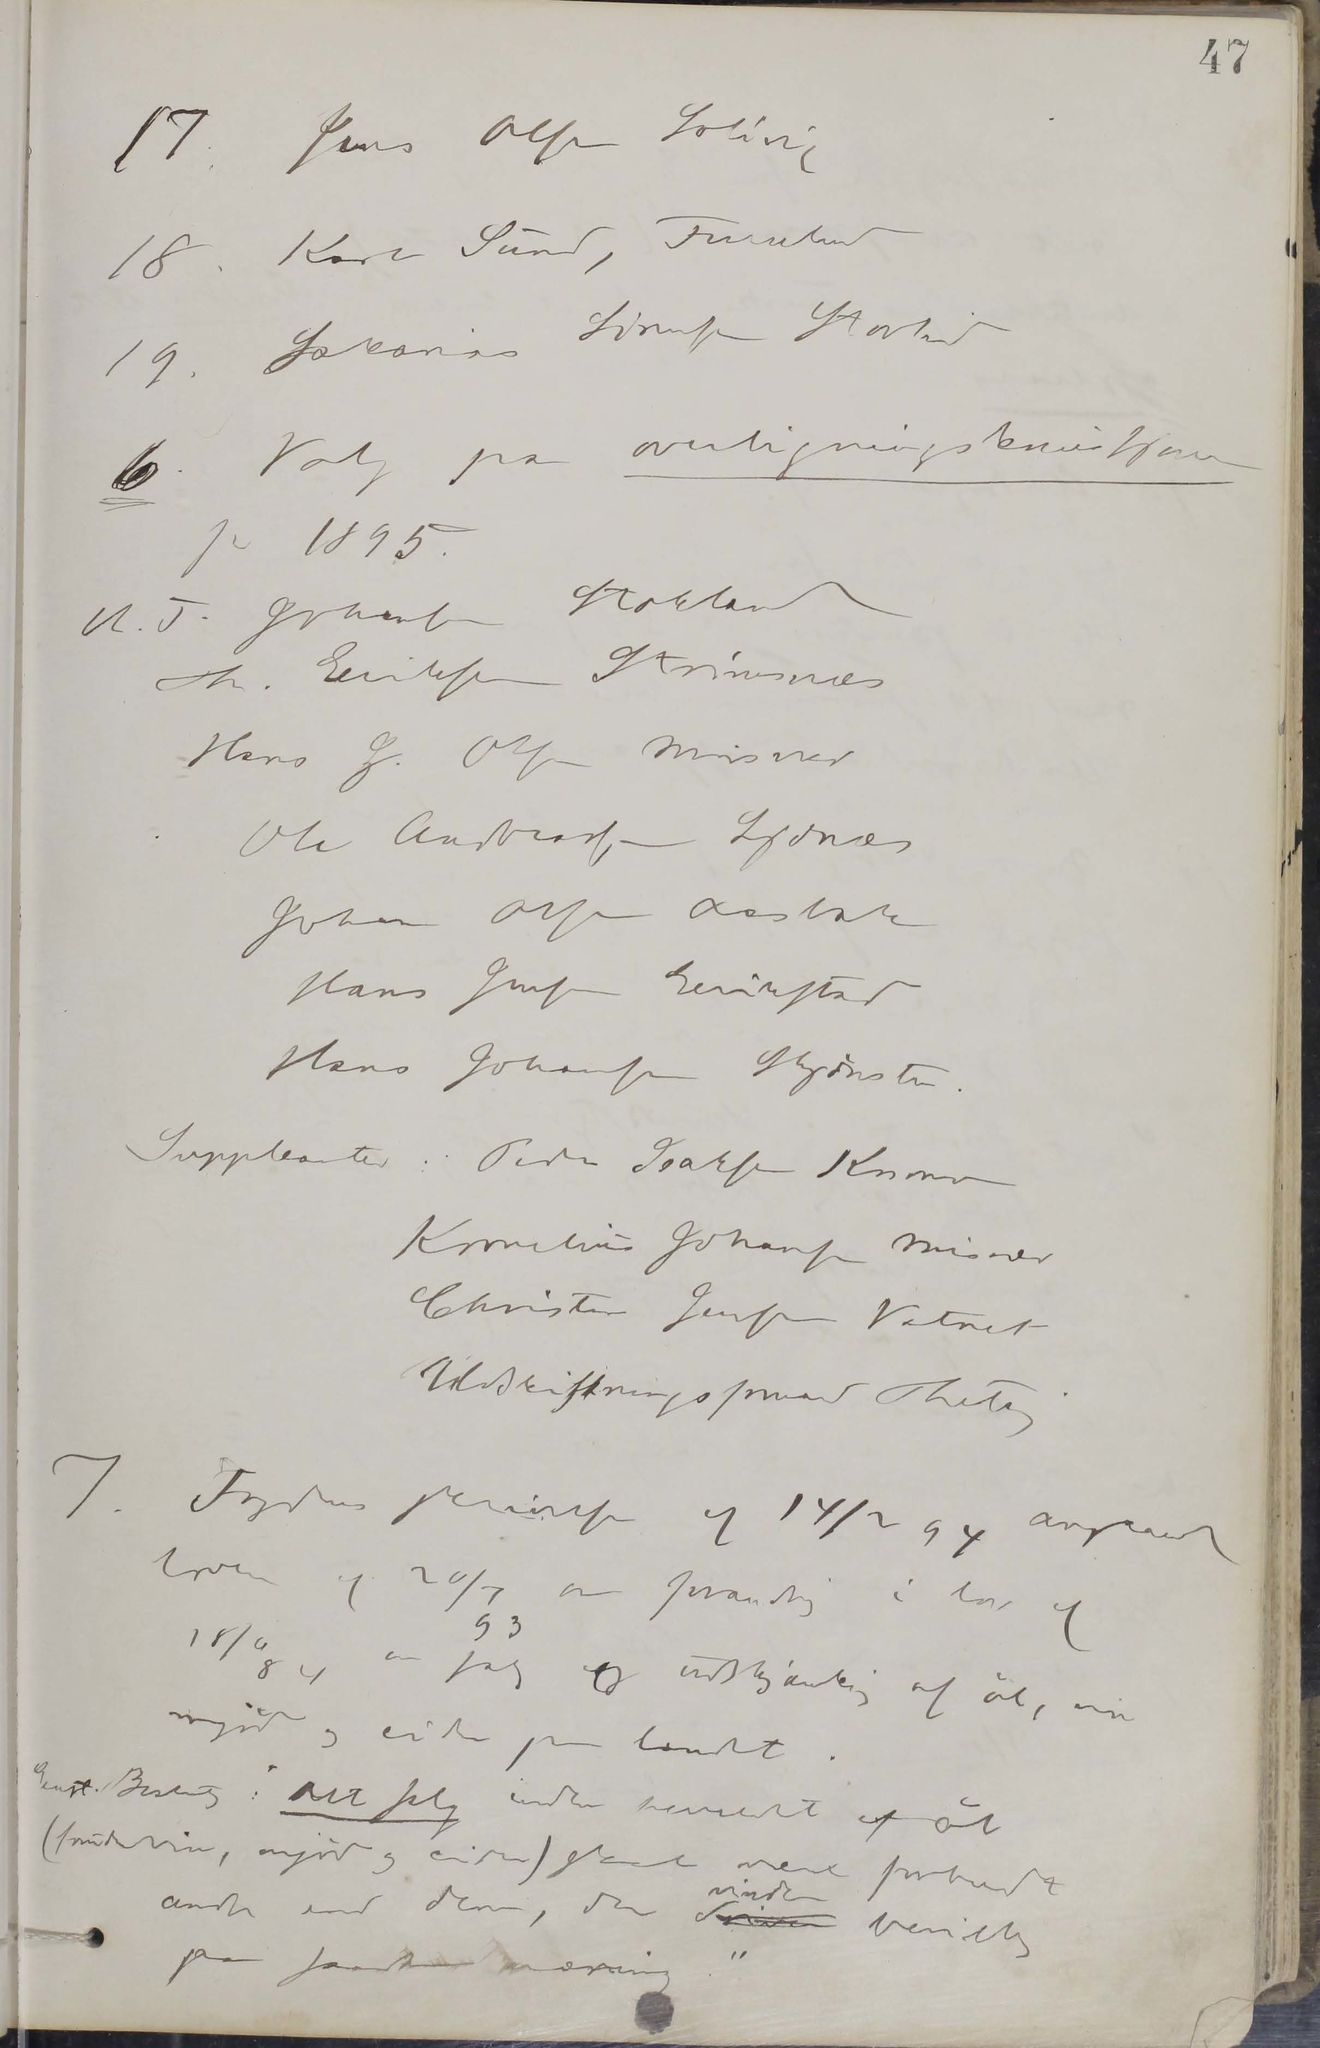 47
17. Jens Olsen Solivig
18. Karl Sund,
19. Sakarias Sörensen Storlid
6. Valg paa overligningskommissjon
for 1895.
N. J. Johansen Stokland
Th. Eeriksen Strömsnæs
Hans J. Olsen Misvær
Ole Andreassen Lydnæs
Johan Olsen Aasbakk
Hans Jensen Eerikstad
Hans Johansen Skjönsten.
Suppleanter: Peder Isaksen
Kornelius Johansen Misvær
Christen Jensen Vatnet
Udskiftningsformand
7. Fogdens skrivelse af 14/2 94 angaaende
loven af 20/7 93 om forandring i lov af
18/ 84 om salg og udskjænkning af öl, vin
mjöd og cider paa landet.
Enst. Beslutn: "Alt salg inden herredet af öl
(frugtvin, mjöd og cider) skal være forbudt
andre end dem, der vinder bevilling
paa saadan næring."